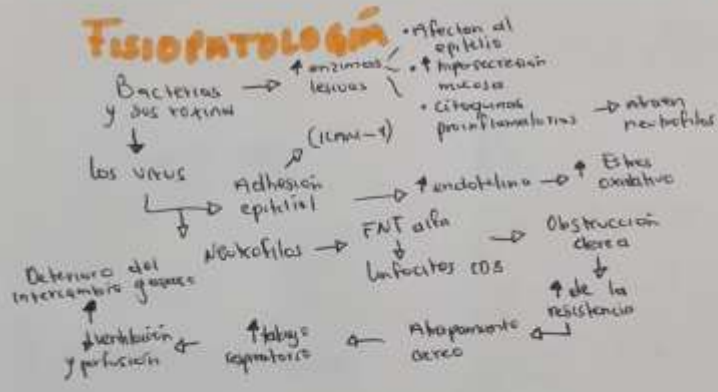 FISIOPATOLOGÍA
Bacterias
y sus toxinas
↑ enzimas
lesivas
• Afectan al
epitelio
• ↑ hipersecreción
mucosa
• citoquinas
proinflamatorias
atraen
neutrofilos
los virus
Adhesión
epitelial
(ICAM-1)
↑ endotelina
↑ Estres
oxidativo
Neutrofilos
FNT alfa
Linfocitos CD8
Obstrucción
aerea
↑ de la
resistencia
Atrapamiento
aereo
↑ trabajo
respiratorio
ventilación
y perfusión
Deterioro del
intercambio gaseoso